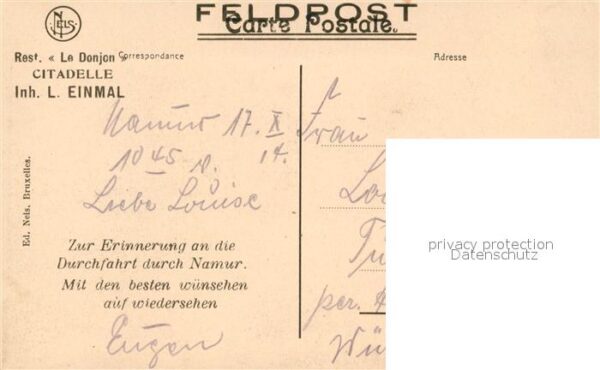 FELDPOST
Carte Postale.
NELS
Rest. « Le Donjon »
CITADELLE
Inh. L. EINMAL
Correspondance
Adresse
Namur 17. X 14.
10 45 N.
Liebe Louise
Zur Erinnerung an die
Durchfahrt durch Namur.
Mit den besten wünsehen
auf wiedersehen
Eugen
Ed. Nels, Bruxelles.
Frau
per.
privacy protection
Datenschutz